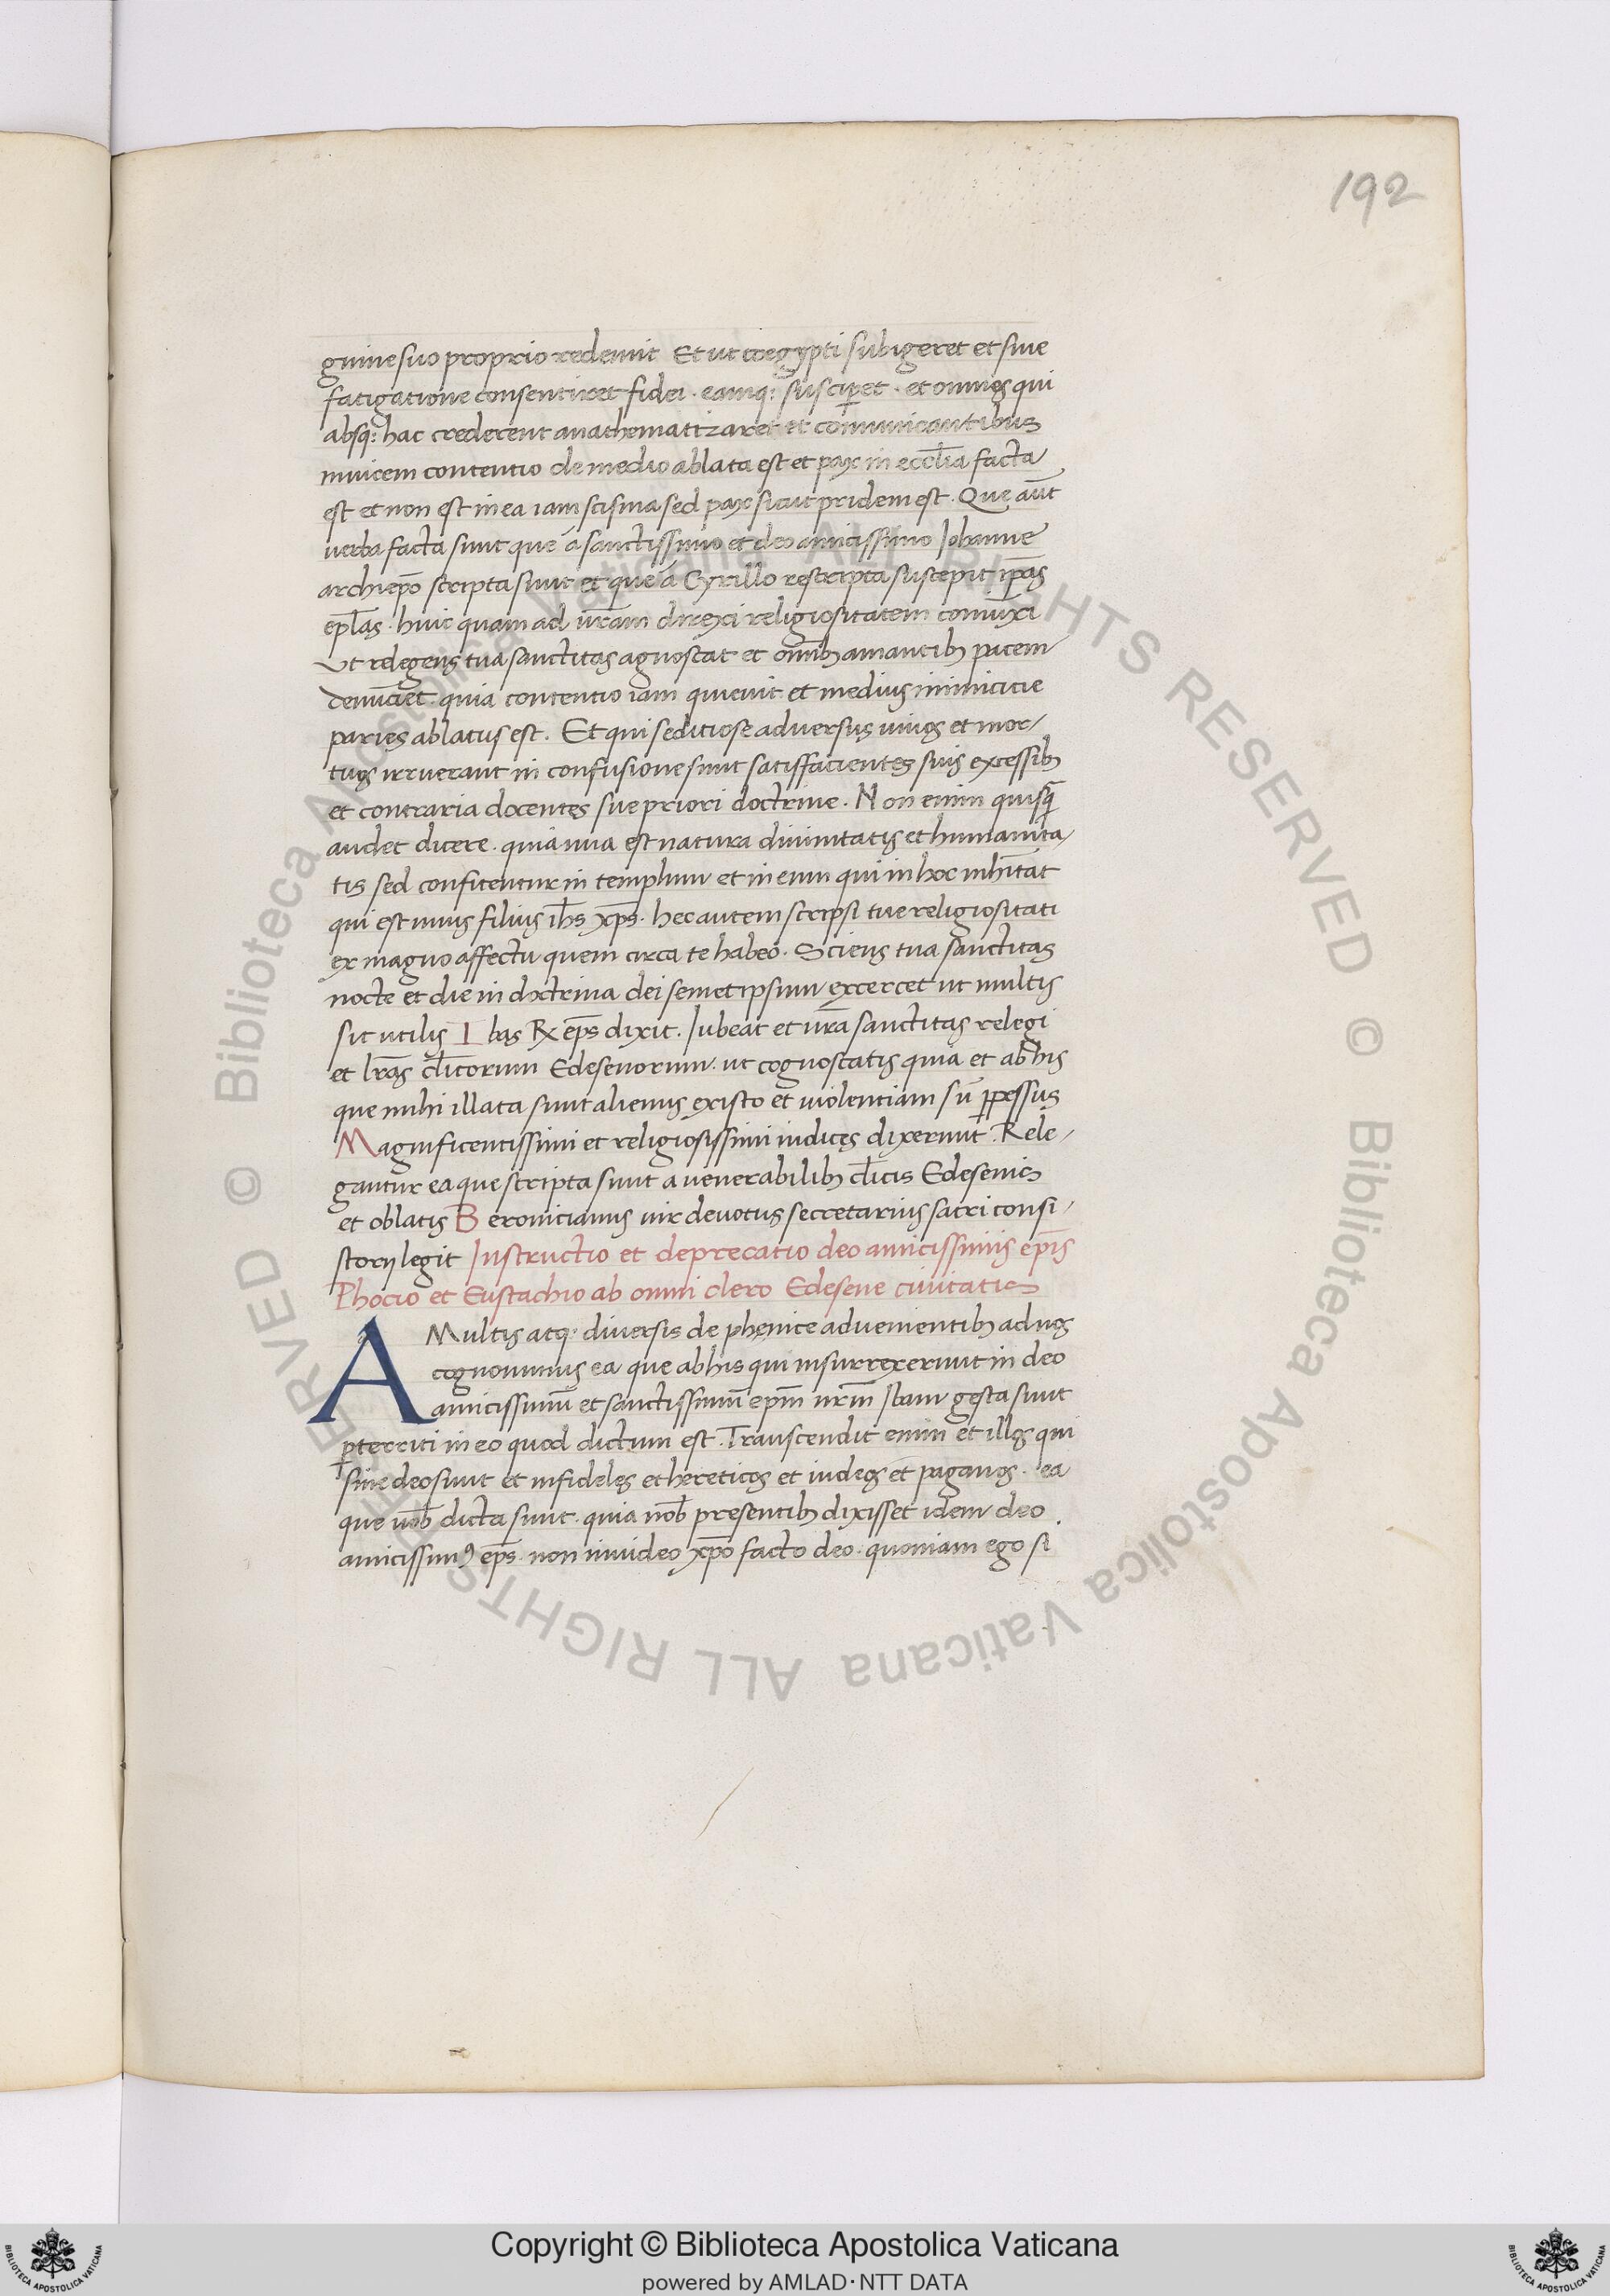 192
guine suo proprio redemit Et ut cor egypti subigeret et sine
fatigatione consentiret fidei · eamq: susciperet · et omnes qui
absq: hac crederent anathematizaret et cōmunicantibus
invicem contentio de medio ablata est et pax in eccl̄ia facta
est et non est in ea iam scisma sed pax sicut pridem est · Que aūt
verba facta sunt que á sanctissimo et deo amicissimo Johanne
archiep̄o scripta sunt et que á Cyrillo rescripta suscepit ip̄as
epl̄as · huic quam ad ur̄am direxi religiositatem coniūxi
Ut relegens tua sanctitas agnoscat et omīb; amantib; pacem
denūciet · quia contentio iam quievit et medius inimicicie
paries ablatus est . Et qui seditiose adversus vivos et mor/
tuos irruerant in confusione sunt satisfacientes suis excessib;
et contraria docentes sue priori doctrine . Non enim quisq̄
audet dicere · quia una est natura divinitatis et humanita/
tis sed confitentur in templum et in eum qui in hoc inhītat
qui est unus filius ih̄s xp̄s · hec autem scripsi tue religiositati
ex magno affectu quem circa te habeo · Sciens tua sanctitas
nocte et die in doctrina dei semetipsum exercet ut multis
sit utilis Ibas R̶x ep̄s dixit . Jubeat et ur̄a sanctitas relegi
et lr̄as cl̄icorum Edesenorum · ut cognoscatis quia et ab his
que mihi illata sunt alienus existo et violentiam sū ꝑpessus
Magnificentissimi et religiosissimi iudices dixerunt . Rele/
gantur ea que scripta sunt a venerabilib; cl̄icis Edesenis
et oblatis Beronicianus vir devotus secretarius sacri consi/
storij legit Instructio et deprecatio deo amicissimis ep̄is
Photio et Eustachio ab omni clero Edesene civitatis
A Multis atq: diversis de phenice advenientib; ad nos
cognovimus ea que ab his qui insurrexerunt in deo
amicissimū et sanctissimū ep̄m nr̄m Jbam gesta sunt
ꝑterriti in eo quod dictum est . Transcendit enim et illos qui
sine deo sunt et infideles et hereticos et iudeos et paganos · ea
que nob̄ dicta sunt · quia nob̄ presentib; dixisset idem deo
amicissimꝰ ep̄s · non invideo xp̄o facto deo · quoniam ego si
© Biblioteca Apostolica Vaticana ALL RIGHTS RESERVED
© Biblioteca Apostolica Vaticana ALL RIGHTS RESERVED
Copyright © Biblioteca Apostolica Vaticana
powered by AMLAD · NTT DATA
BIBLIOTECA APOSTOLICA VATICANA
BIBLIOTECA APOSTOLICA VATICANA